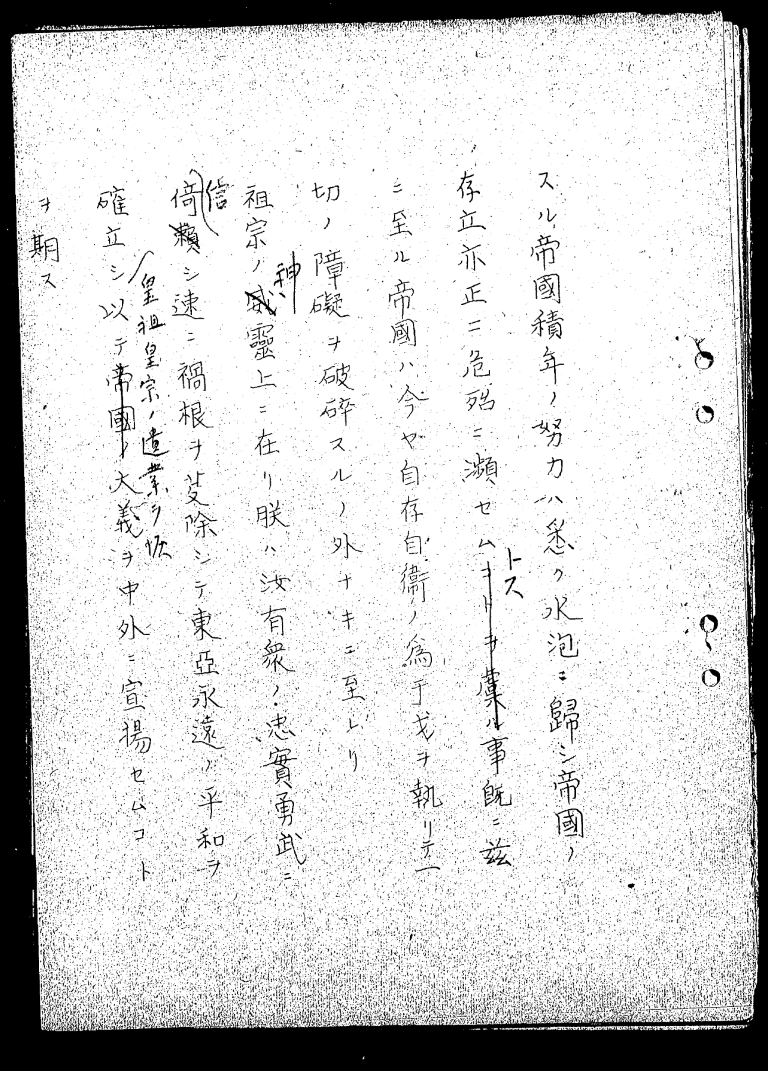 スル帝國積年ノ努力ハ悉ク水泡ニ歸シ帝國ノ
存立亦正ニ危殆ニ瀕セムコトヲ虞ル事既ニ茲
トス
ニ至ル帝國ハ今ヤ自存自衞ノ爲干戈ヲ執リテ一
切ノ障礙ヲ破碎スルノ外ナキニ至レリ
祖宗ノ威靈上ニ在リ朕ハ汝有衆ノ忠實勇武ニ
神
倚賴シ速ニ禍根ヲ芟除シテ東亞永遠ノ平和ヲ
信
確立シ以テ帝國ノ大義ヲ中外ニ宣揚セムコト
皇祖皇宗ノ遺業ヲ恢
ヲ期ス